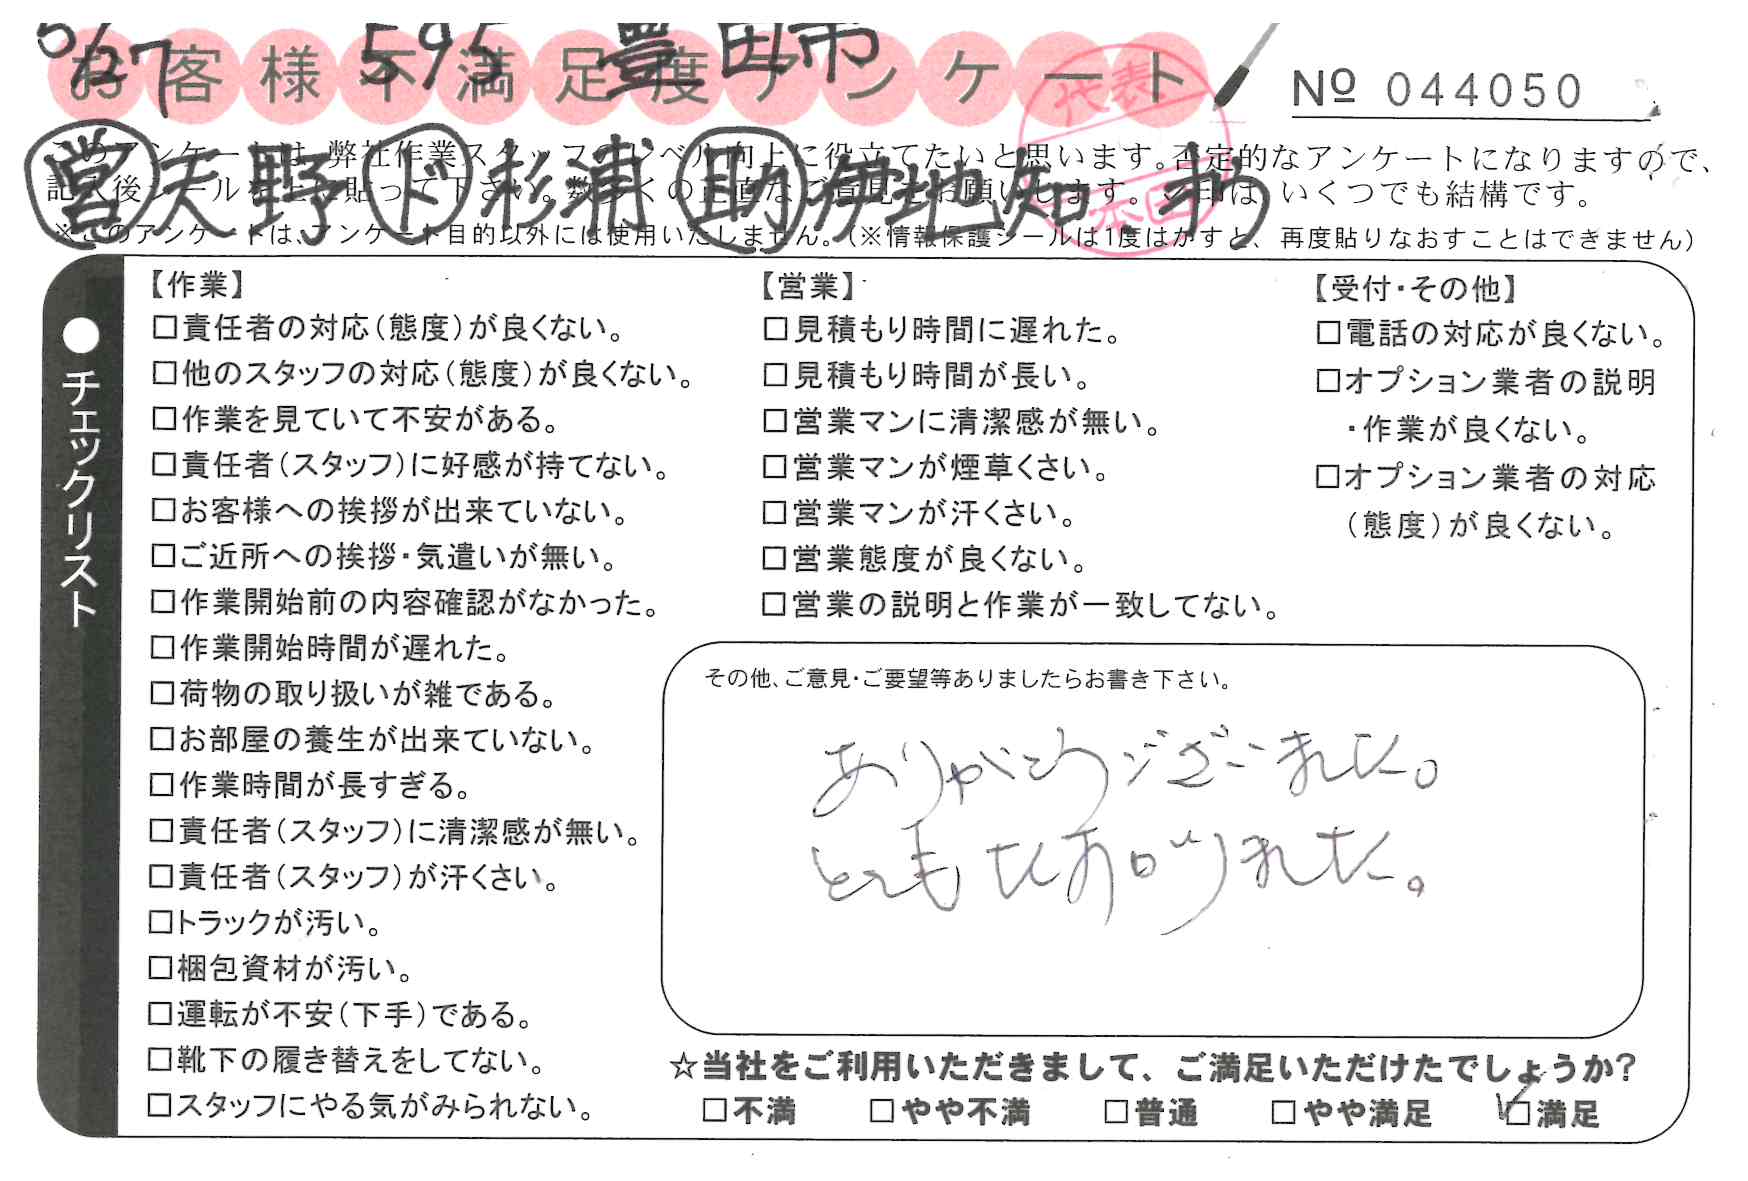 5/27 595 豊田市
お客様不満足度アンケート
代表
本田
№ 044050
営 天野 ド 杉浦 助 伊地知
このアンケートは、弊社作業スタッフのレベル向上に役立てたいと思います。否定的なアンケートになりますので、
記入後シールを上に貼って下さい。数多くの正直なご意見をお願いします。✓印は、いくつでも結構です。
※このアンケートは、アンケート目的以外には使用いたしません。(※情報保護シールは1度はがすと、再度貼りなおすことはできません)
●チェックリスト
【作業】
□責任者の対応(態度)が良くない。
□他のスタッフの対応(態度)が良くない。
□作業を見ていて不安がある。
□責任者(スタッフ)に好感が持てない。
□お客様への挨拶が出来ていない。
□ご近所への挨拶・気遣いが無い。
□作業開始前の内容確認がなかった。
□作業開始時間が遅れた。
□荷物の取り扱いが雑である。
□お部屋の養生が出来ていない。
□作業時間が長すぎる。
□責任者(スタッフ)に清潔感が無い。
□責任者(スタッフ)が汗くさい。
□トラックが汚い。
□梱包資材が汚い。
□運転が不安(下手)である。
□靴下の履き替えをしてない。
□スタッフにやる気がみられない。
【営業】
□見積もり時間に遅れた。
□見積もり時間が長い。
□営業マンに清潔感が無い。
□営業マンが煙草くさい。
□営業マンが汗くさい。
□営業態度が良くない。
□営業の説明と作業が一致してない。
【受付・その他】
□電話の対応が良くない。
□オプション業者の説明
・作業が良くない。
□オプション業者の対応
(態度)が良くない。
その他、ご意見・ご要望等ありましたらお書き下さい。
ありがとうございました。
とても
☆当社をご利用いただきまして、ご満足いただけたでしょうか?
□不満 □やや不満 □普通 □やや満足 ☑満足